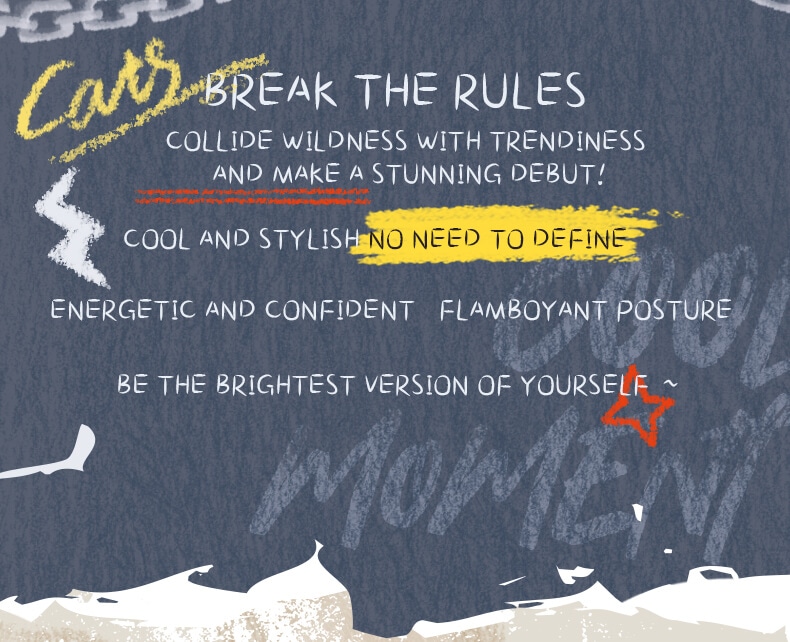 Cars
BREAK THE RULES
COLLIDE WILDNESS WITH TRENDINESS
AND MAKE A STUNNING DEBUT!
COOL AND STYLISH NO NEED TO DEFINE
ENERGETIC AND CONFIDENT FLAMBOYANT POSTURE
BE THE BRIGHTEST VERSION OF YOURSELF ~
COOL
MOMENT